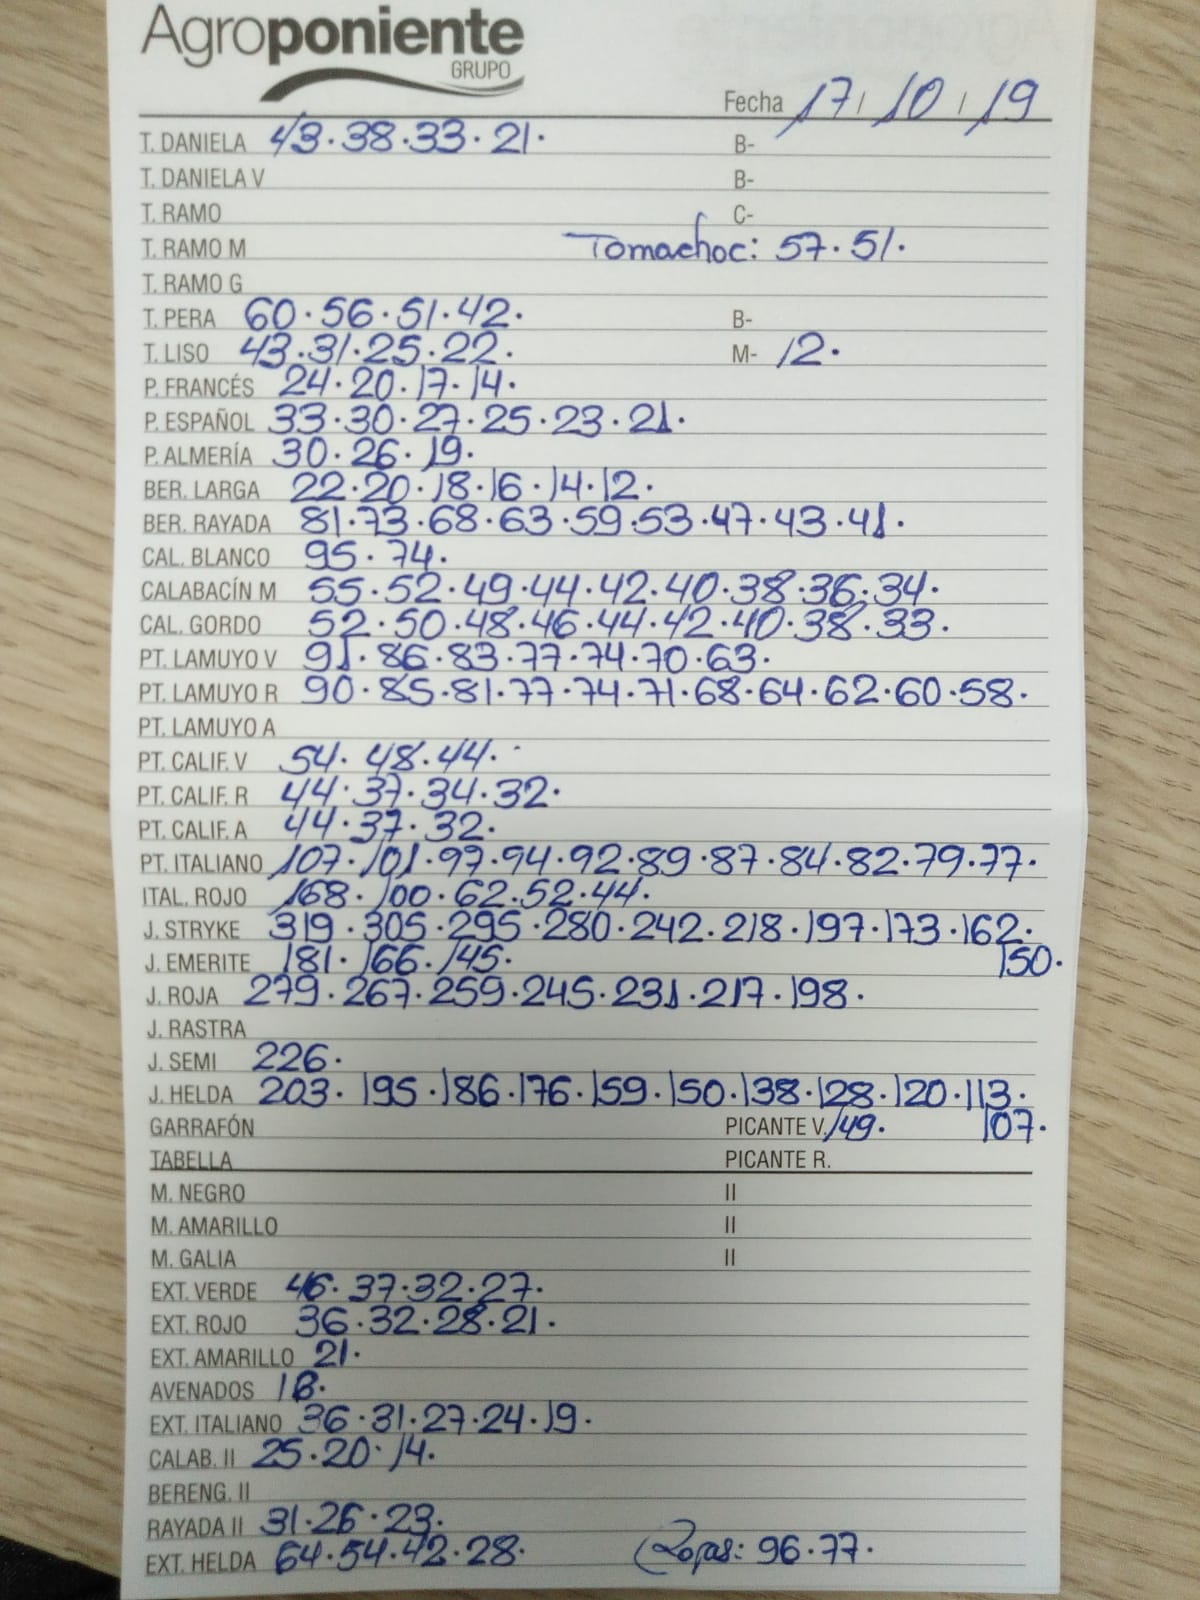 Agroponiente
GRUPO
Fecha 17/10/19
T. DANELA 43·38·33·21· B-
T. DANIELA V B-
T. RAMO C-
T. RAMO M Tomachoc: 57·51·
T. RAMO G
T. PERA 60·56·51·42· B-
T. LISO 43·31·25·22· M- 12·
P. FRANCÉS 24·20·17·14·
P. ESPAÑOL 33·30·27·25·23·21·
P. ALMERÍA 30·26·19·
BER. LARGA 22·20·18·16·14·12·
BER. RAYADA 81·73·68·63·59·53·47·43·41·
CAL. BLANCO 95·74·
CALABACÍN M 55·52·49·44·42·40·38·36·34·
CAL. GORDO 52·50·48·46·44·42·40·38·33·
PT. LAMUYO V 91·86·83·77·74·70·63·
PT. LAMUYO R 90·85·81·77·74·71·68·64·62·60·58·
PT. LAMUYO A
PT. CALIF. V 54·48·44·
PT. CALIF. R 44·37·34·32·
PT. CALIF. A 44·37·32·
PT. ITALIANO 107·101·97·94·92·89·87·84·82·79·77·
ITAL. ROJO 168·100·62·52·44·
J. STRYKE 319·305·295·280·242·218·197·173·162·
J. EMERITE 181·166·145· 150·
J. ROJA 279·267·259·245·231·217·198·
J. RASTRA
J. SEMI 226·
J. HELDA 203·195·186·176·159·150·138·128·120·113·
GARRAFÓN PICANTE V. 149· 107·
TABELLA PICANTE R.
M. NEGRO II
M. AMARILLO II
M. GALIA II
EXT. VERDE 46·37·32·27·
EXT. ROJO 36·32·28·21·
EXT. AMARILLO 21·
AVENADOS 18·
EXT. ITALIANO 36·31·27·24·19·
CALAB. II 25·20·14·
BERENG. II
RAYADA II 31·26·23·
EXT. HELDA 64·54·42·28· Rojas: 96·77·